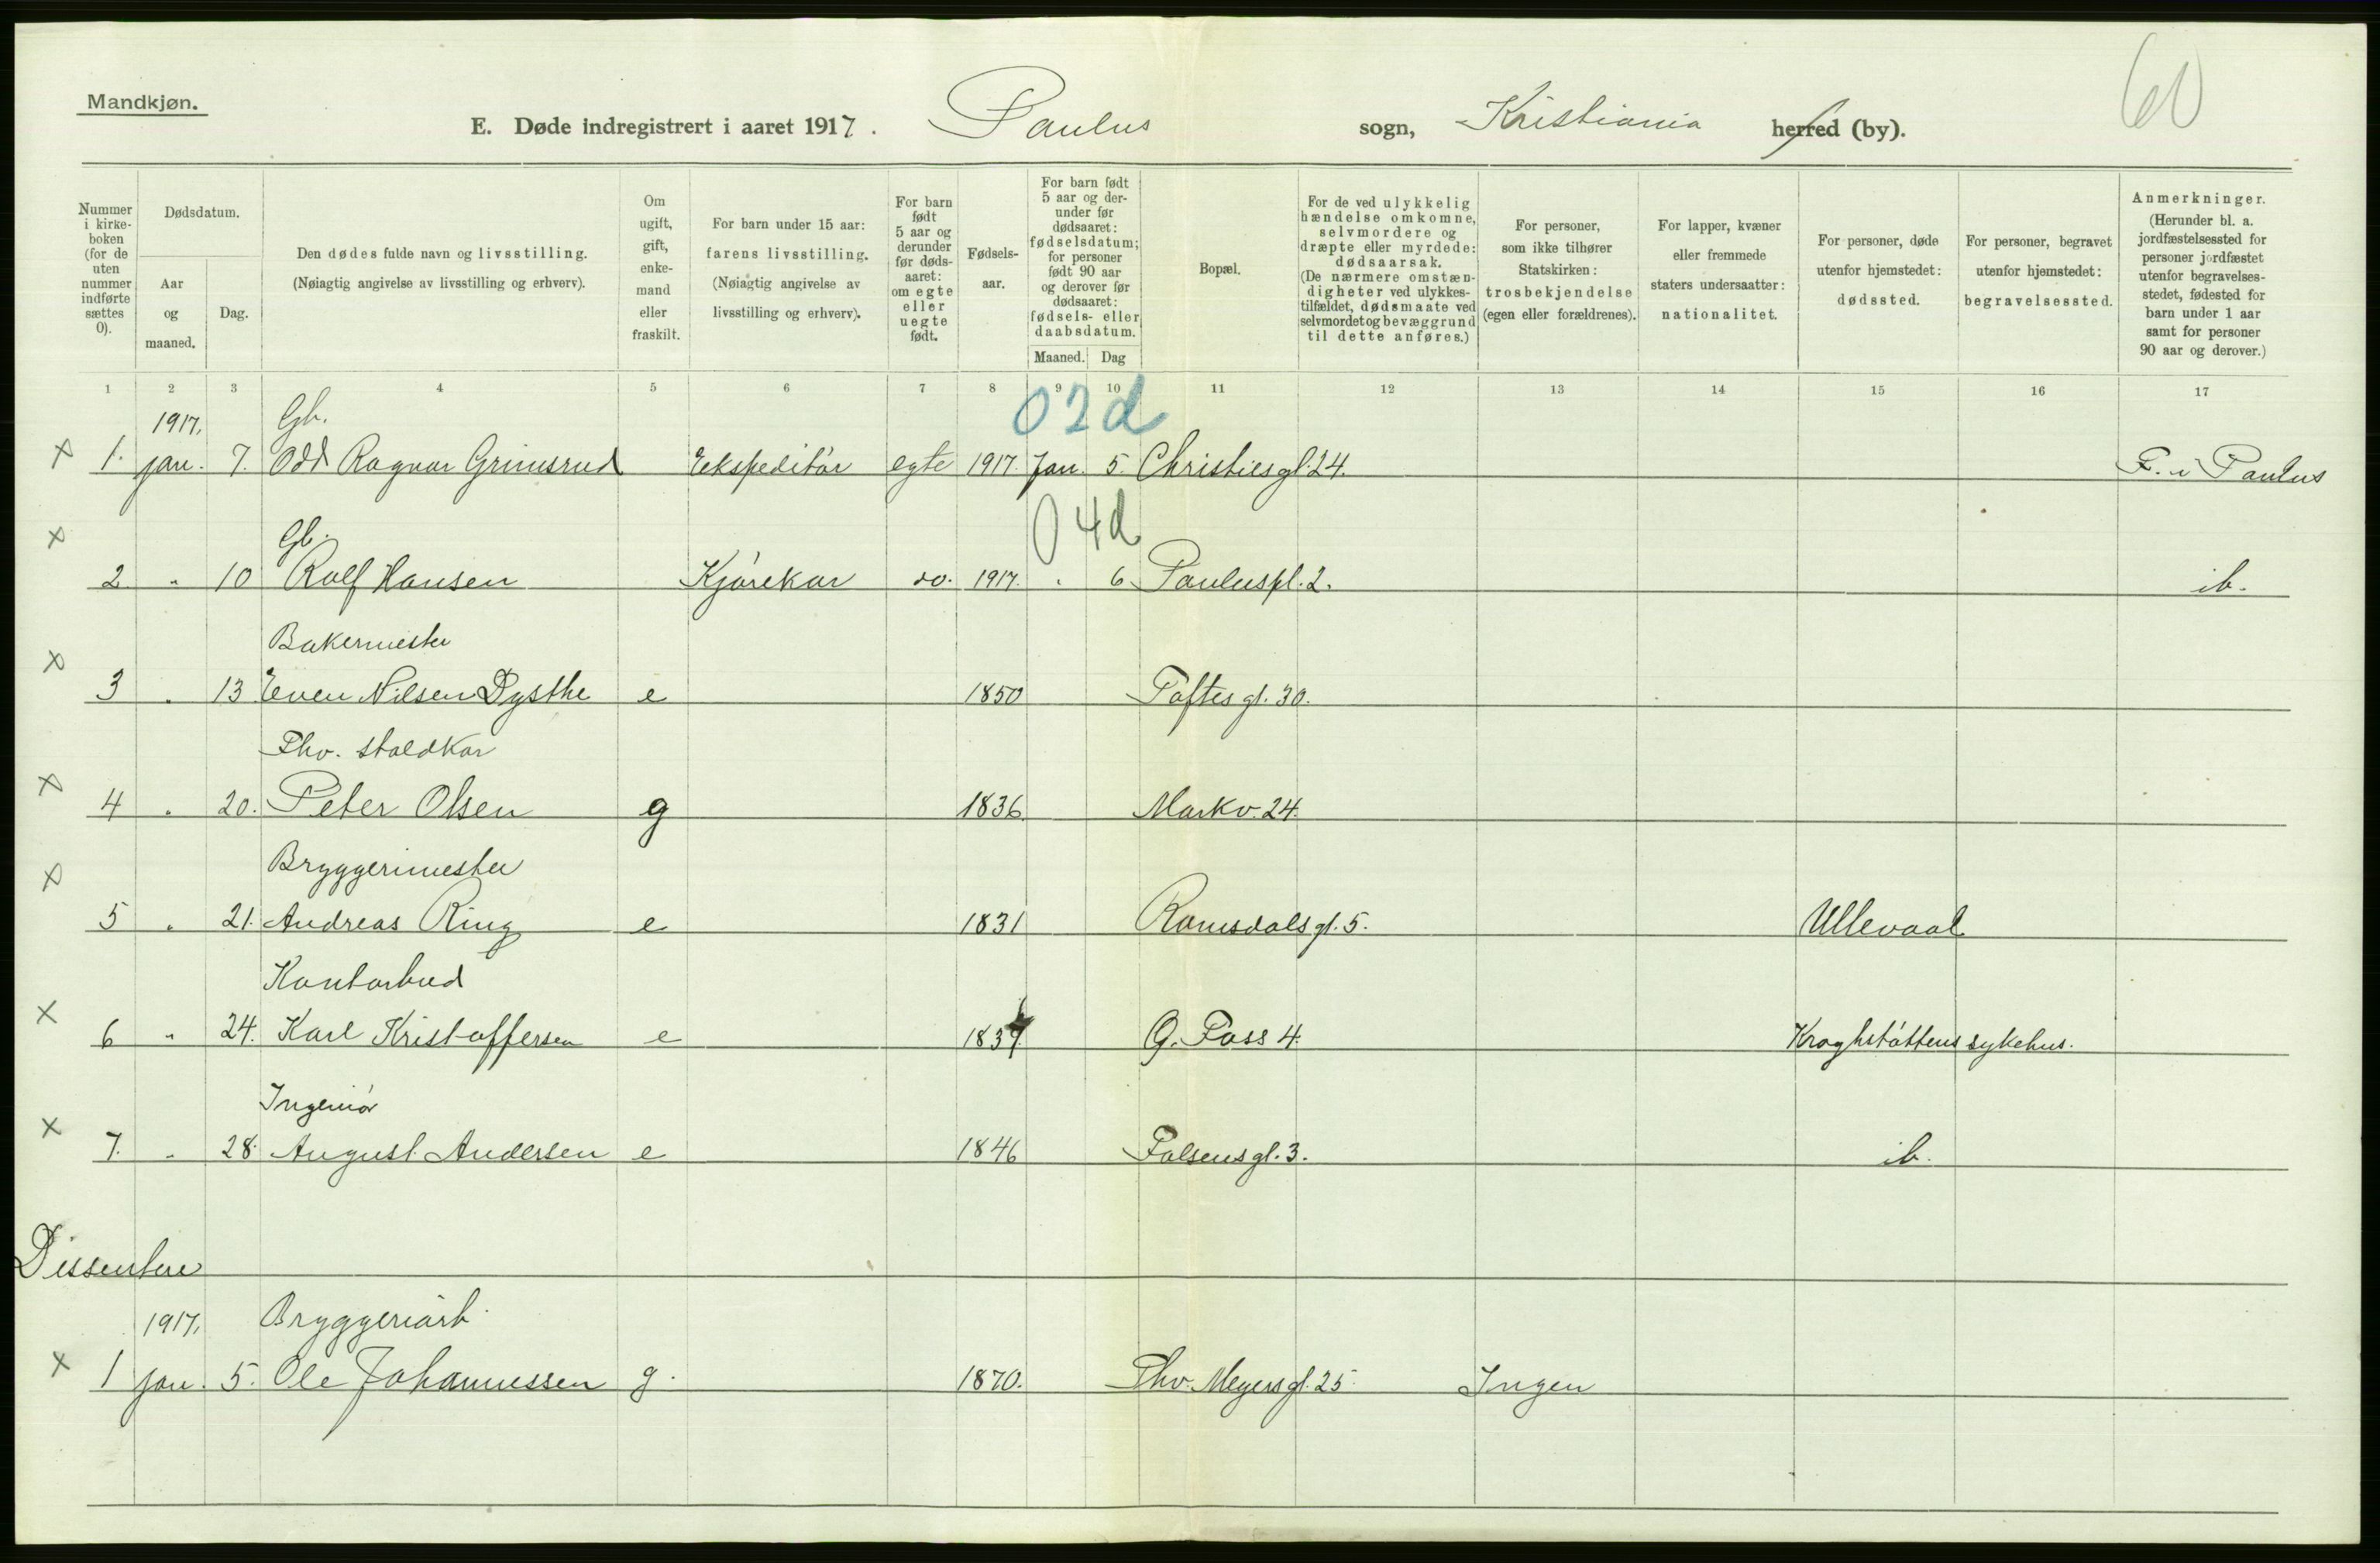 Mandkjøn.
60
E. Døde indregistrert i aaret 1917. Paulus sogn, Kristiania herred (by).
Nummer i kirkeboken (for de uten nummer indførte sættes 0).
Dødsdatum.
Aar og maaned.
Dag.
Den dødes fulde navn og livsstilling. (Nøiagtig angivelse av livsstilling og erhverv).
Om ugift, gift, enkemand eller fraskilt.
For barn under 15 aar: farens livsstilling. (Nøiagtig angivelse av livsstilling og erhverv).
For barn født 5 aar og derunder før dødsaaret: om egte eller uegte født.
Fødselsaar.
For barn født 5 aar og derunder før dødsaaret: fødselsdatum; for personer født 90 aar og derover før dødsaaret: fødsels- eller daabsdatum.
Maaned. Dag
Bopæl.
For de ved ulykkelig hændelse omkomne, selvmordere og dræpte eller myrdede: dødsaarsak. (De nærmere omstændigheter ved ulykkestilfældet, dødsmaate ved selvmordet og bevæggrund til dette anføres.)
For personer, som ikke tilhører Statskirken: trosbekjendelse (egen eller forældrenes).
For lapper, kvæner eller fremmede staters undersaatter: nationalitet.
For personer, døde utenfor hjemstedet: dødssted.
For personer, begravet utenfor hjemstedet: begravelsessted.
Anmerkninger. (Herunder bl. a. jordfæstelsessted for personer jordfæstet utenfor begravelsesstedet, fødested for barn under 1 aar samt for personer 90 aar og derover.)
1 2 3 4 5 6 7 8 9 10 11 12 13 14 15 16 17
1917. Gb. 02d
x 1. jan. 7. Odd Ragnar Grimsrud Ekspeditør egte 1917. Jan. 5. Christies gt. 24. F. i Paulus
Gb. 04d
x 2 " 10 Rolf Hansen Kjørekar do. 1917. " 6 Pauluspl. 2. ib.
Bakermester
x 3 " 13 Even Nilsen Dysthe e 1850 Toftes gt. 30.
Fhv. staldkar
x 4 " 20. Peter Olsen g 1836 Markv. 24.
Bryggerimester
x 5 " 21. Andreas Ring e 1831 Romsdals gt. 5. Ullevaal
Kontorbud
x 6 " 24. Karl Kristoffersen e G. Foss 4. Kroghstøttens sykehus.
Ingeniør
x 7. " 28. August Andersen e 1846 Falsens gt. 3. ib.
Dissentere
1917. Bryggeriarb.
x 1 jan. 5. Ole Johannessen g. 1870. Thv. Meyers gt. 25 Ingen